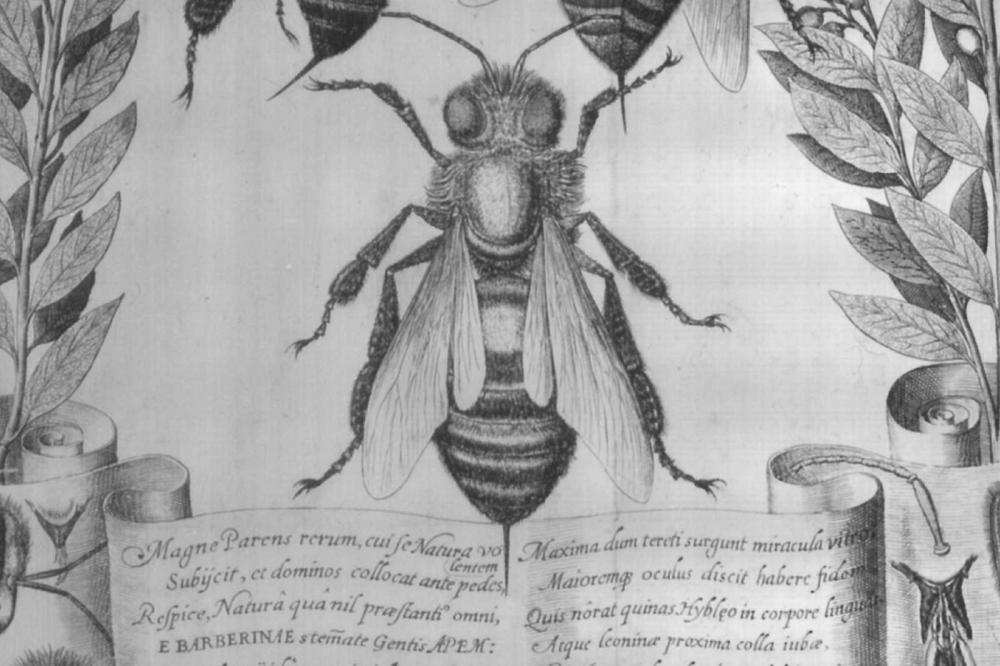 Magne Parens rerum, cui se Natura vo
lentem
Subijcit, et dominos collocat ante pedes,
Respice, Naturâ quâ nil præstanti⁹ omni,
E BARBERINAE stem̃ate Gentis APEM:
Maxima dum tereti surgunt miracula vitro,
Maioremq₃ oculus discit habere fidem
Quis nôrat quinas Hyblęo in corpore linguas
Atque leoninæ proxima colla iubæ,